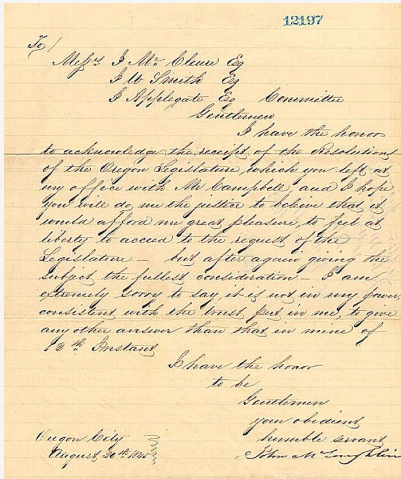 12197
To /
Messrs J Mc Clure Esq
J W Smith Esq
J Applegate Esq Committee
Gentlemen
I have the honor
to acknowledge the receipt of the Resolutions
of the Oregon Legislature which you left at
my office with Mr Campbell and I hope
you will do me the justice to believe that it
would afford me great pleasure, to feel at
liberty to acceed to the request of the
Legislature – but after again giving the
subject the fullest consideration – I am
extremely sorry to say it is not in my power
consistent with the trust put in me, to give
any other answer than that in mine of
13th Instant
I have the honor
to be
Gentlemen
your obedient
humble servant
Oregon City John McLoughlin
August 20th 1845